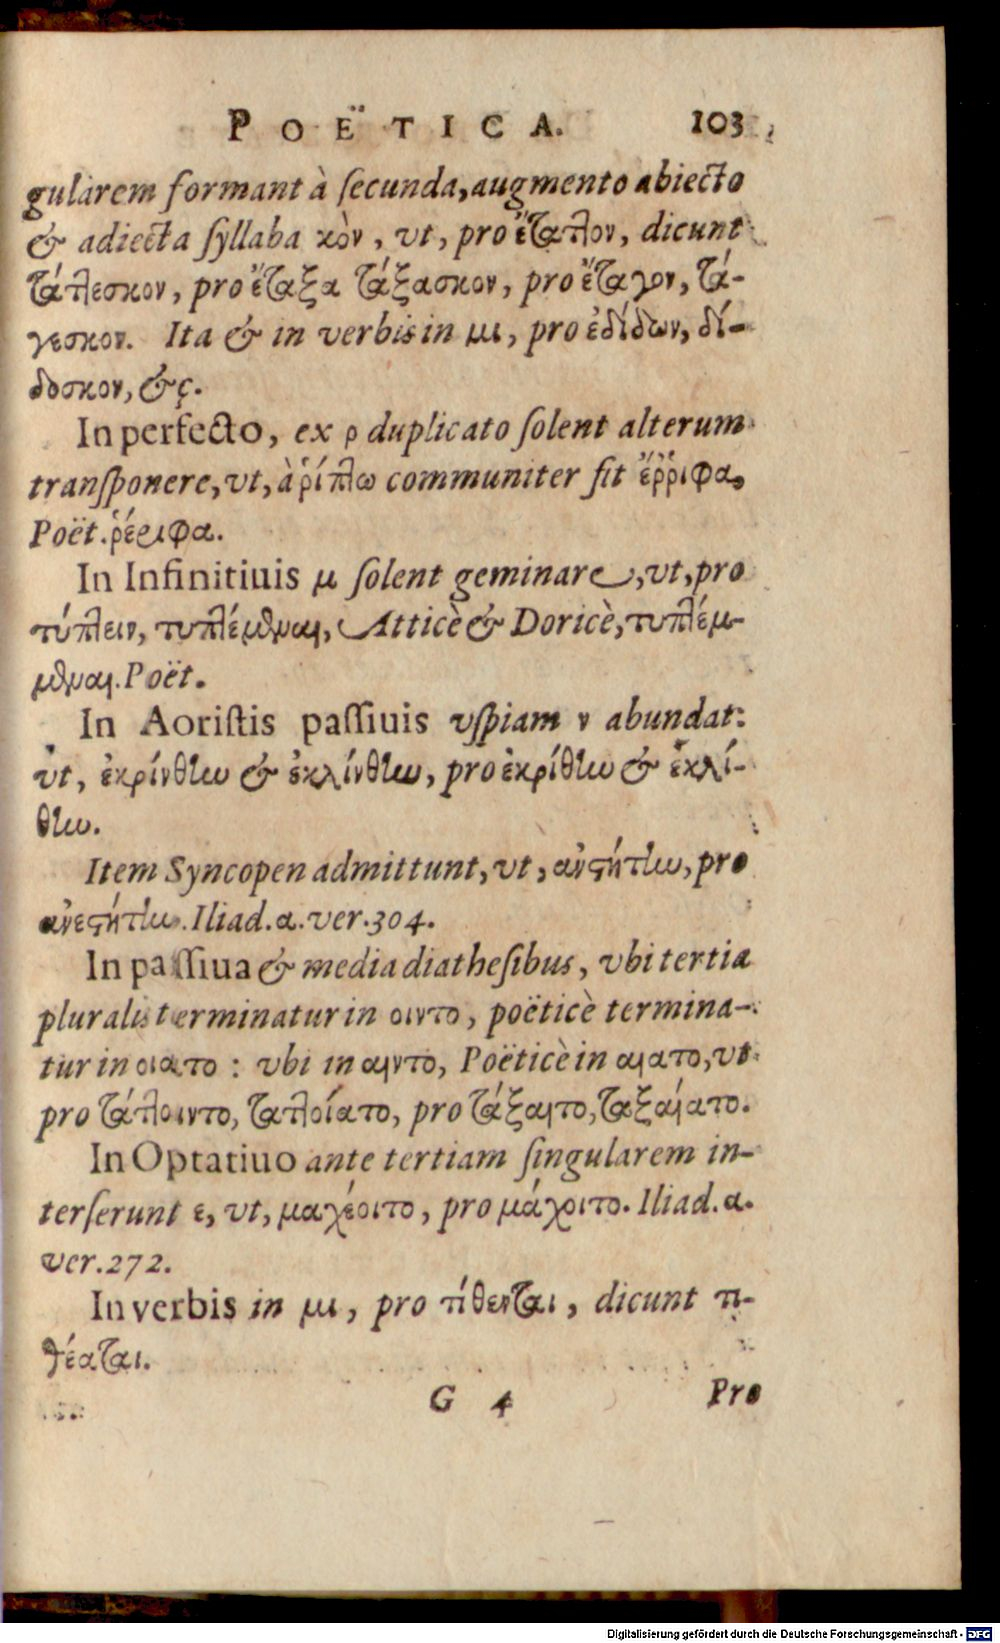 POËTICA. 103
gularem formant à ſecunda, augmento abiecto
& adiecta ſyllaba κὸν, vt, pro ἔταττον, dicunt
τάττεσκον, pro ἔταξα τάξασκον, pro ἔταγον, τά-
γεσκον. Ita & in verbis in μι, pro ἐδίδων, δί-
δοσκον, &c.
In perfecto, ex ρ duplicato ſolent alterum
tranſponere, vt, à ῥίπτω communiter fit ἔῤῥιφα,
Poët. ῥέριφα.
In Infinitiuis μ ſolent geminare, vt, pro
τύπτειν, τυπτέμεναι, Atticè & Doricè, τυπτέμ-
μεναι. Poët.
In Aoriſtis paſſiuis vſpiam ν abundat:
vt, ἐκρίνθην & ἐκλίνθην, pro ἐκρίθην & ἐκλί-
θην.
Item Syncopen admittunt, vt, ἀνστήτην, pro
ἀνεστήτην. Iliad. α. ver. 304.
In paſſiua & media diatheſibus, vbi tertia
pluralis terminatur in οιντο, poëticè termina-
tur in οιατο: vbi in αιντο, Poëticè in αιατο, vt
pro τάττοιντο, ταττοίατο, pro τάξαιτο, ταξαίατο.
In Optatiuo ante tertiam ſingularem in-
terſerunt ε, vt, μαχέοιτο, pro μάχοιτο. Iliad. α.
ver. 272.
In verbis in μι, pro τίθενται, dicunt τι-
θέαται.
G 4 Pro
Digitalisierung gefördert durch die Deutsche Forschungsgemeinschaft - DFG